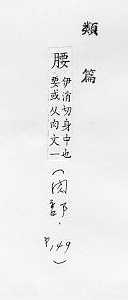 類篇
腰 伊消切身中也
要或从肉文一
(肉部・
P.149)